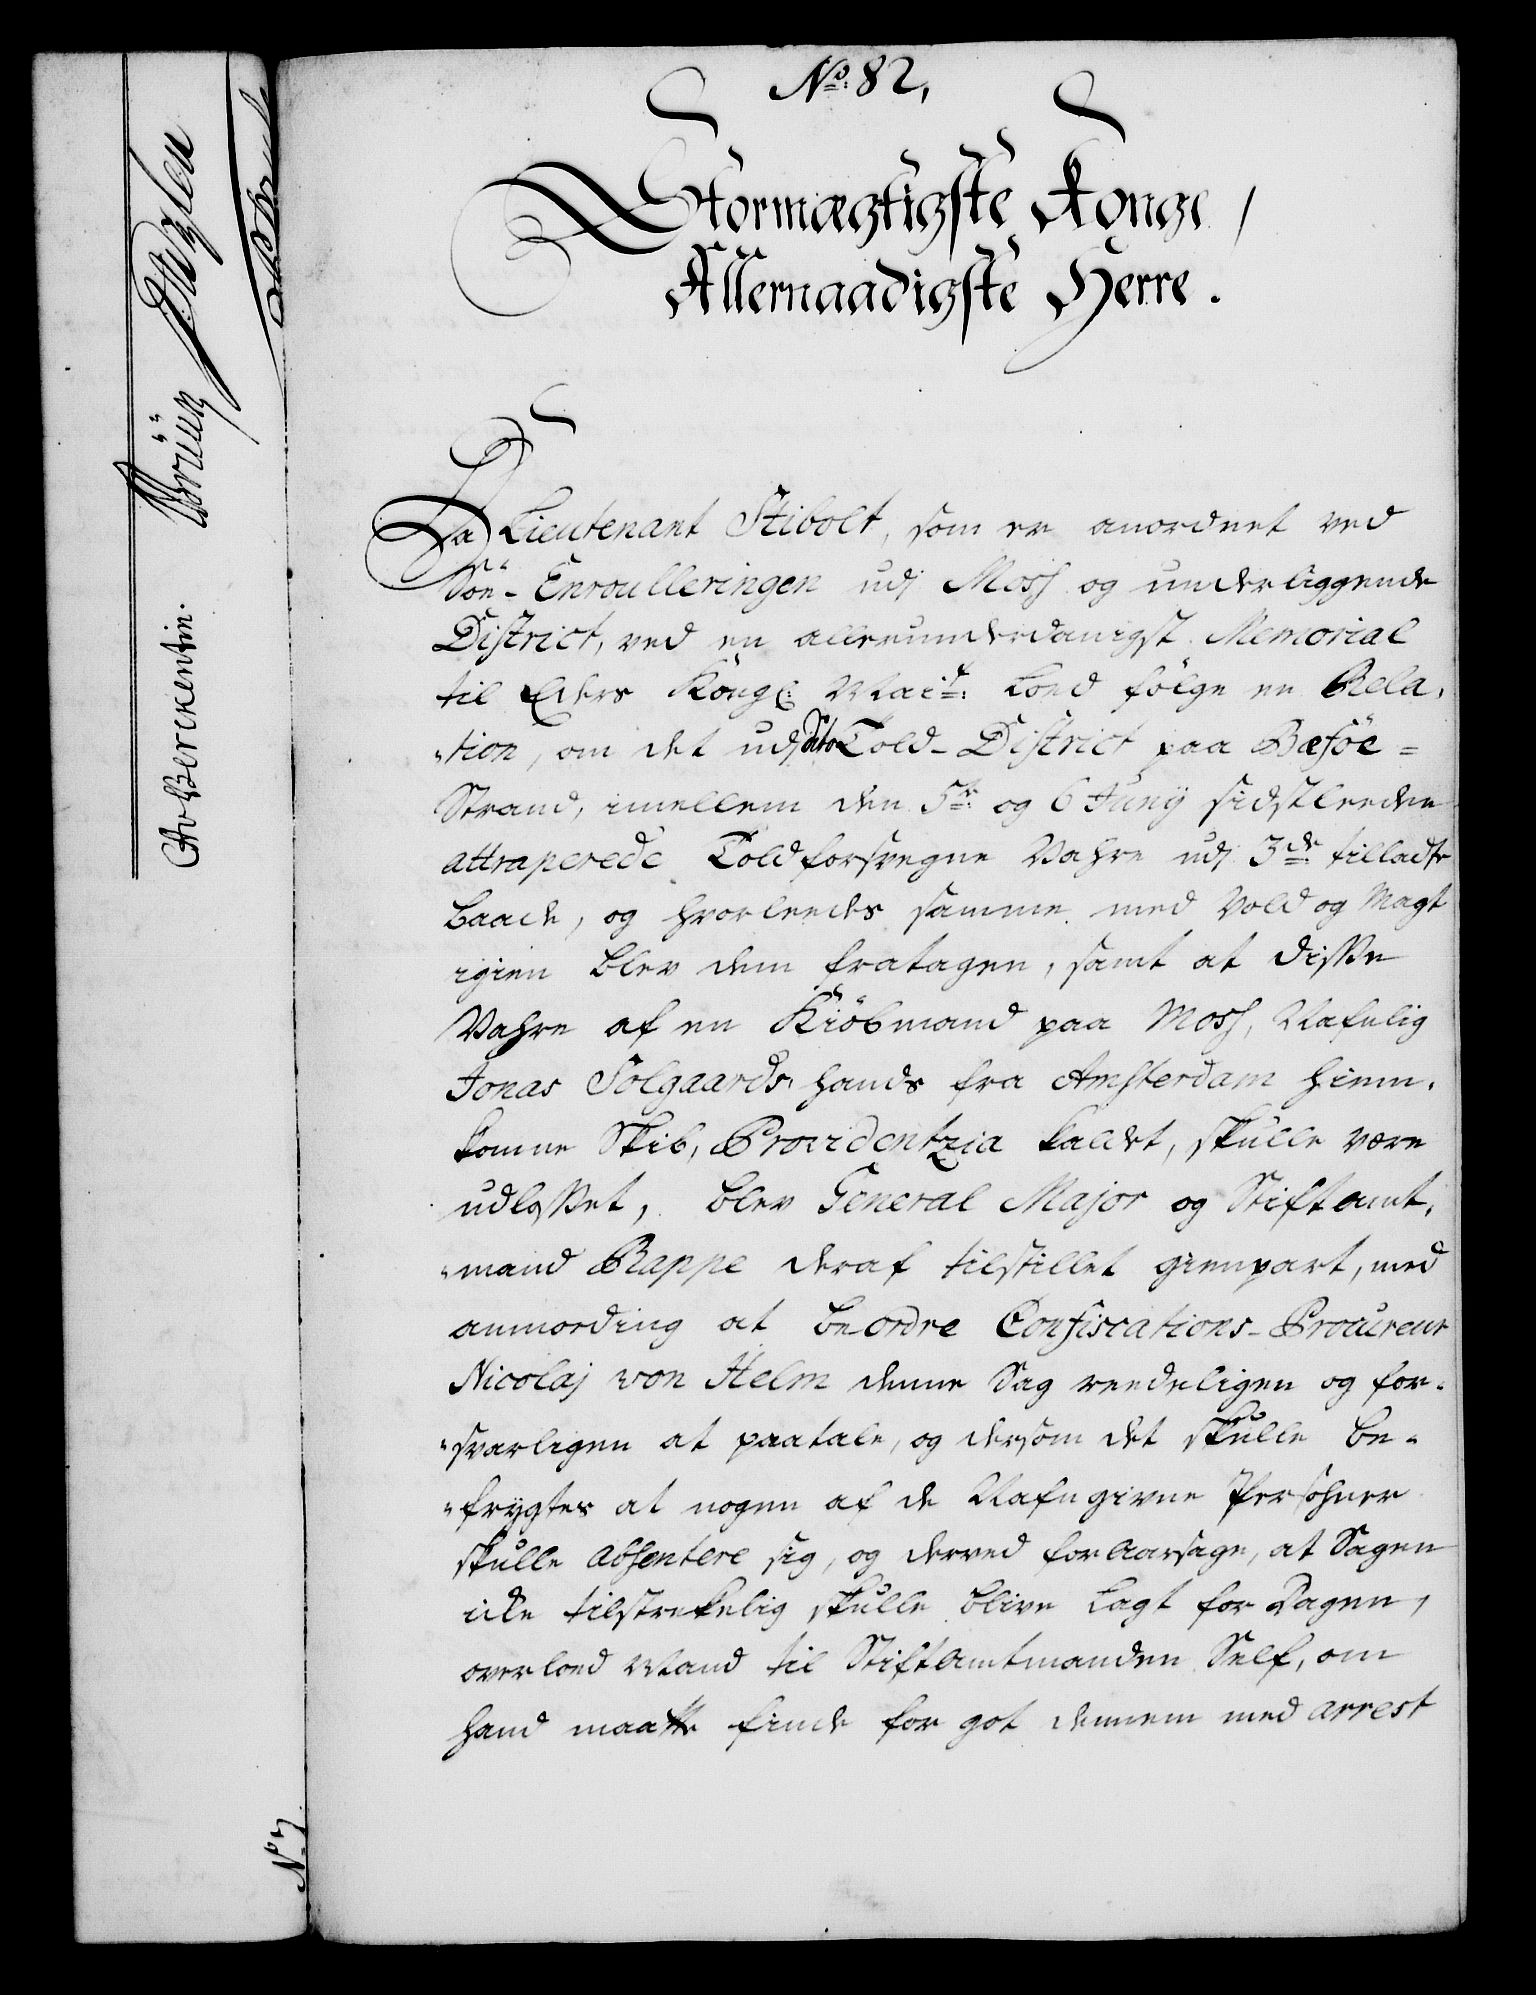 No. 82,
Stormægtigste Konge /
Allernaadigste Herre.
Da Lieutenant Stibolt, som er anordnet ved
Söe-Enroulleringen udj Moss og underliggende
District, ved en allerunderdanigst Memorial
til Eders Kongl: Mait: loed fölge en Rela,
"tion, om det udj Told-District paa Bæföe=
Strand, imellem den 5te og 6 Junij sidstleeden
attraperede Toldforsvegne Vahre udj 3de tilladte
Baade, og hvorleedes samme med Vold og Magt
igien blev dem fratagen, samt at disse
Vahre af en Kiöbmand paa Moss, Nafnlig
Jonas Solgaards, hands fra Amsterdam hiem,
komne Skib, Providentzia kaldet, skulle være
udlosset, blev General Major og Stiftamt,
"mand Rappe deraf tilstillet gienpart, med
anmording at beordre Confiscations-Procureur
Nicolaj von Helm denne Sag reedeligen og for-
"svarligen at paatale, og dersom det skulle be-
"frygtes at nogen af de Nafngivne Persohner
skulle absentere sig, og derved foraarsage, at Sagen
icke tilstrekelig skulle blive lagt for Dagen,
overloed Mand til Stiftamtmanden Self, om
hand maatte finde for got dennem med arrest
CAvBerckentin.
No 7.